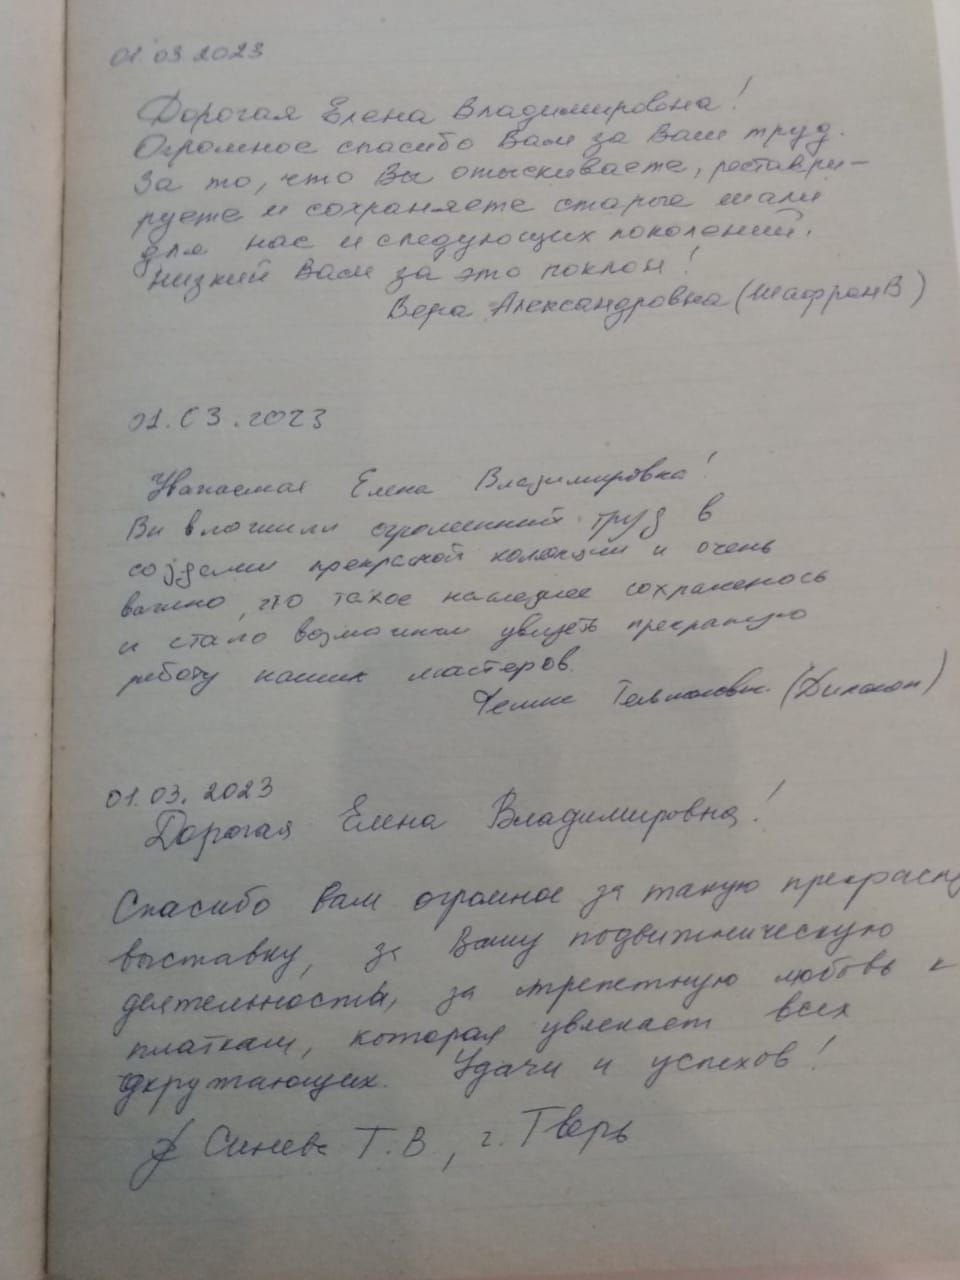 01.03.2023
Дорогая Елена Владимировна!
Огромное спасибо Вам за Ваш труд.
За то, что Вы отыскиваете, реставри-
руете и сохраняете старые шали
для нас и следующих поколений.
Низкий Вам за это поклон!
Вера Александровна (Шафран В)
01.03.2023
Уважаемая Елена Владимировна!
Вы вложили огромный труд в
создании прекрасной колекции и очень
важно, что такое наследие сохранялось
и стало возможным увидеть прекрасную
работу наших мастеров.
01.03.2023
Дорогая Елена Владимировна!
Спасибо Вам огромное за такую прекрасну
выставку, за Вашу подвижническую
деятельность, за трепетную любовь к
платкам, которая увлекает всех
окружающих. Удачи и успехов!
Синева Т.В, г. Тверь